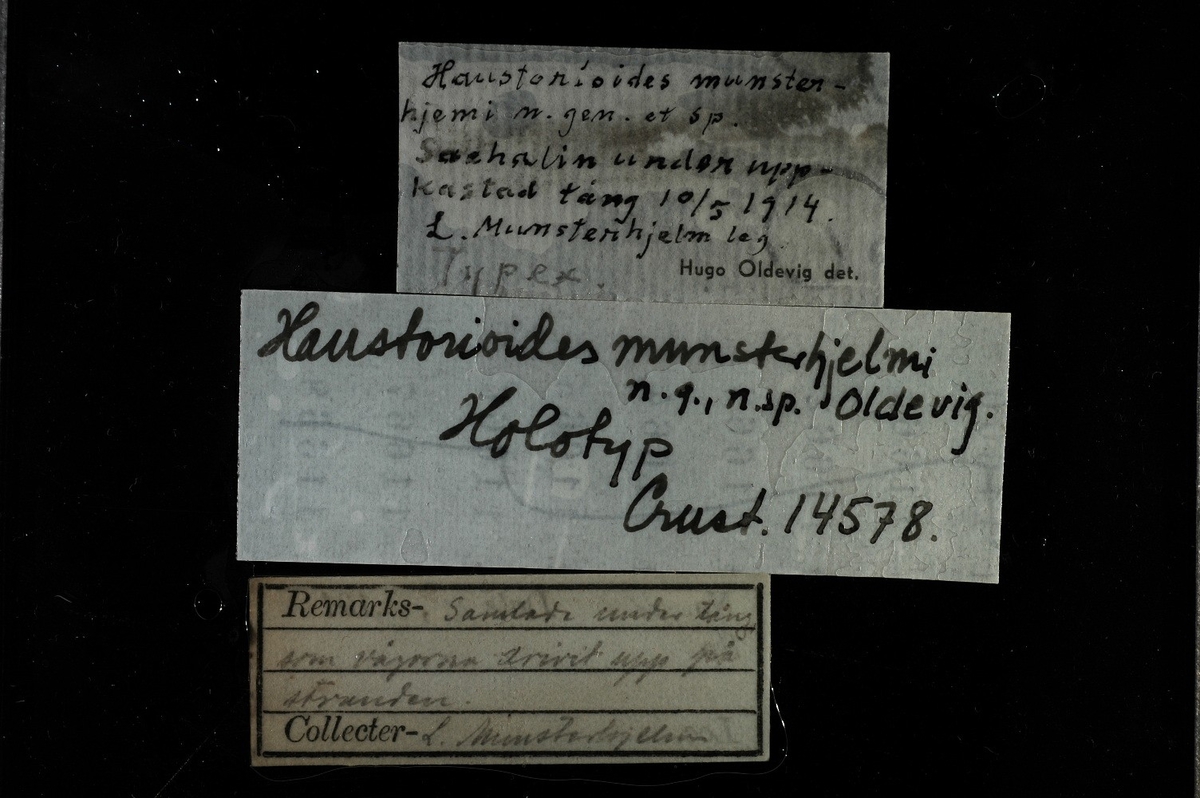 Haustorioides munster-
hjemi n. gen. et sp.
Sachalin under upp-
kastad tång 10/5 1914.
L. Munsterhjelm leg.
Typex.
Hugo Oldevig det.
Haustorioides munsterhjelmi
n. g., n. sp. Oldevig.
Holotyp
Crust. 14578.
Remarks- Samlade under tång
som vågorna drivit upp på
stranden.
Collecter- L. Munsterhjelm